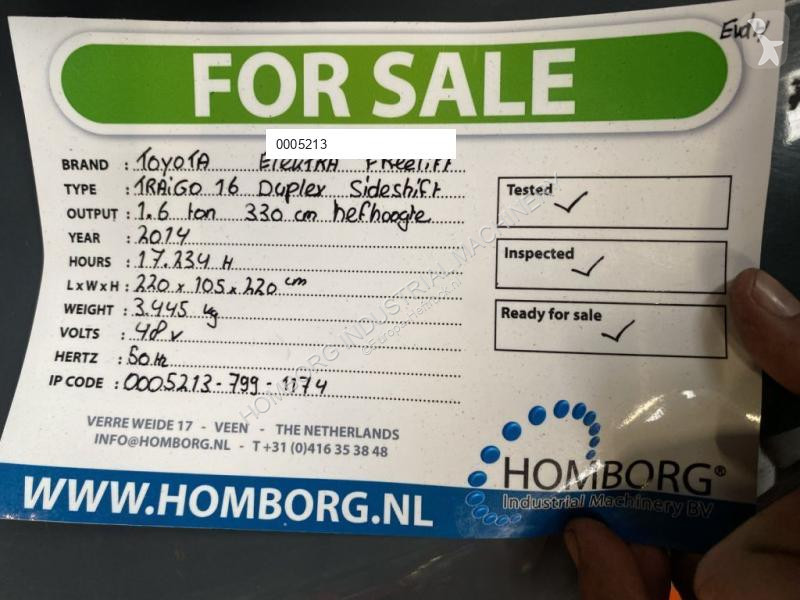 EvdH
FOR SALE
0005213
BRAND : TOYOTA Elektra Freelift
TYPE : TRAiGO 16 Duplex Sideshift
OUTPUT : 1.6 ton 330 cm hefhoogte
YEAR : 2014
HOURS : 17.234 H
L x W x H : 220 x 105 x 220 cm
WEIGHT : 3.445 kg
VOLTS : 48 v
HERTZ : 50 Hz
IP CODE : 0005213-799-1174
Tested
Inspected
Ready for sale
VERRE WEIDE 17 - VEEN - THE NETHERLANDS
INFO@HOMBORG.NL - T +31 (0)416 35 38 48
WWW.HOMBORG.NL
HOMBORG®
Industrial Machinery BV
HOMBORG INDUSTRIAL MACHINERY